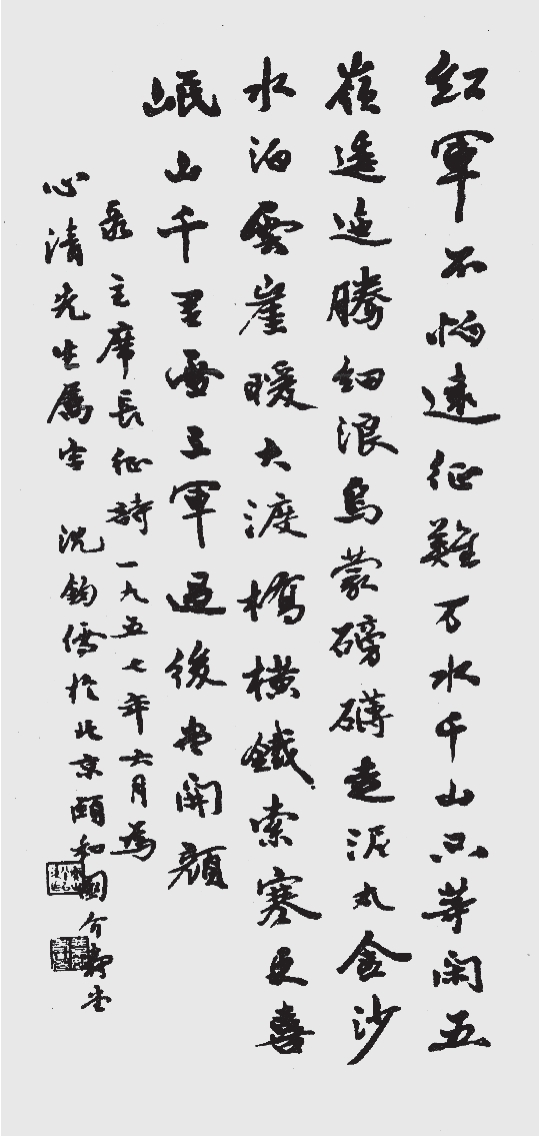 紅軍不怕遠征難万水千山只等闲五
嶺逶迤騰細浪烏蒙磅礴走泥丸金沙
水泊雲崖暖大渡橋橫鐵索寒更喜
岷山千里雪三軍過後尽開顏
录主席長征詩一九五七年六月為
心清先生属字 沈鈞儒於北京頤和園介壽堂